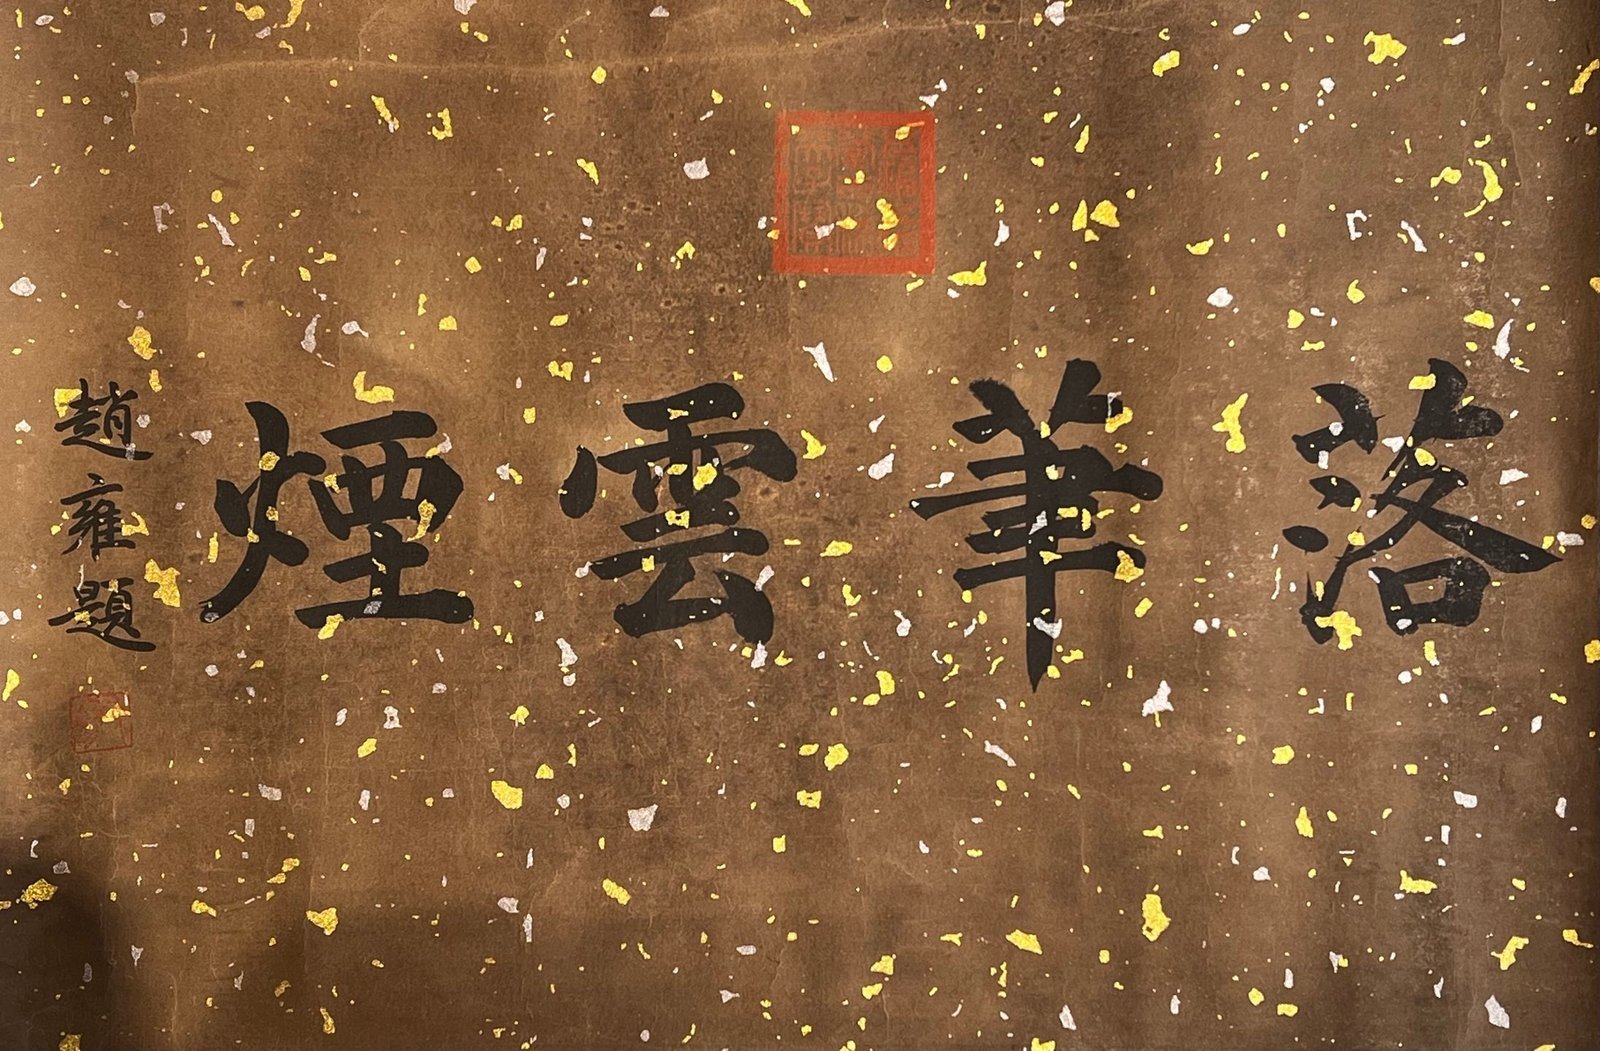 落筆雲煙
趙雍題